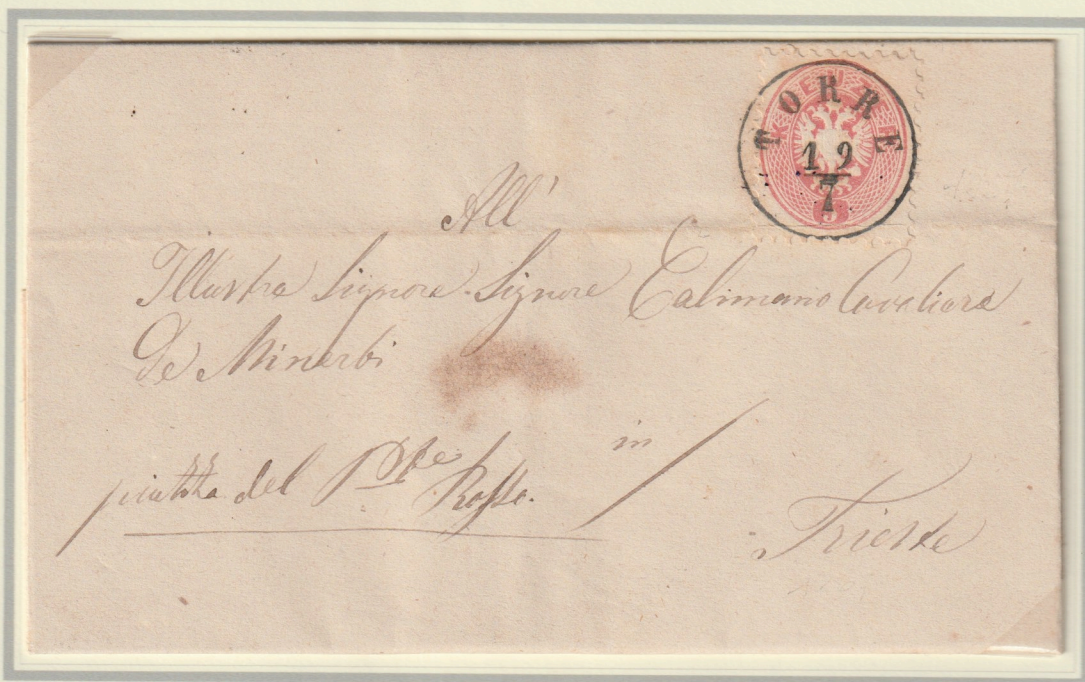 KREUZER
TORRE
19
7
5
All'
Illustre Signore Signore Calimano Cavaliere
de Minerbi
piazza del Pte Rosso.
in
Trieste